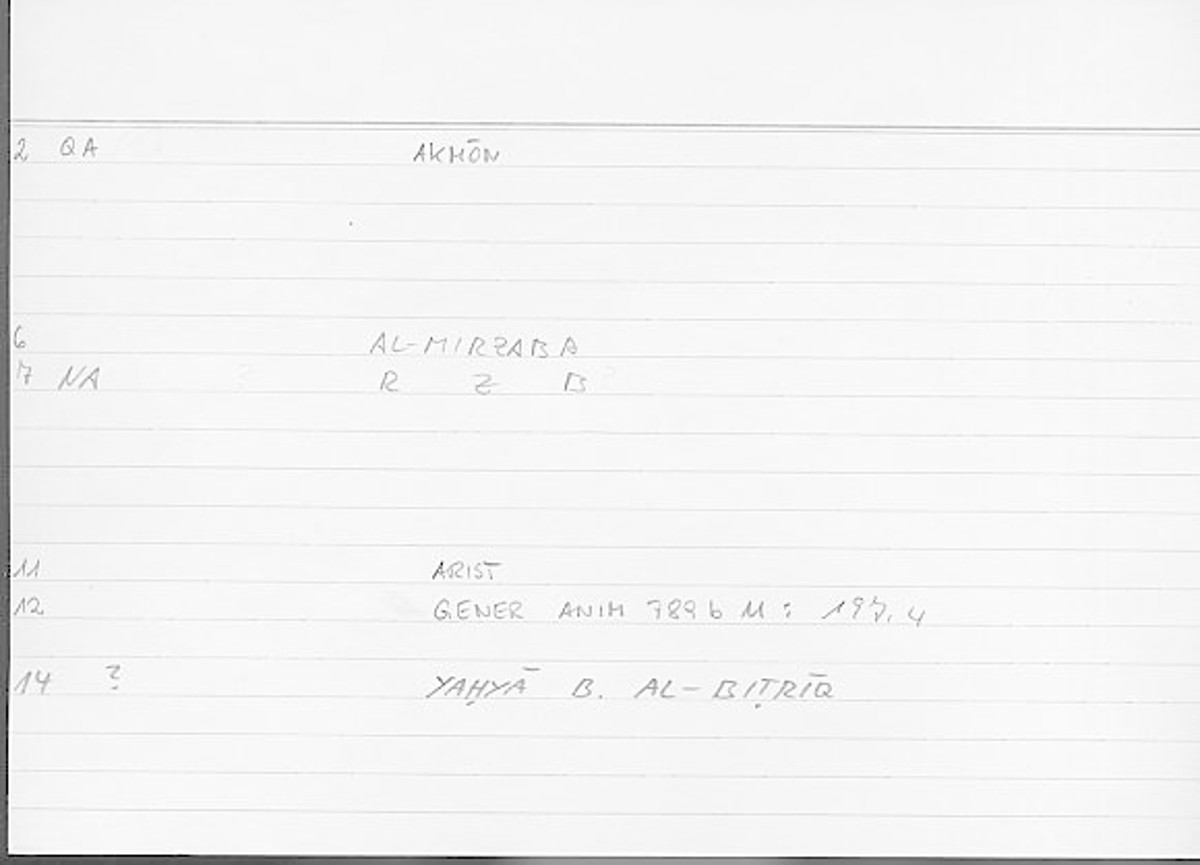 2 QA AKMŌN
6 AL-MIRZABA
7 NA R Z B
11 ARIST
12 GENER ANIM 789 b 11 : 197, 4
14 ? YAḤYĀ B. AL-BIṬRĪQ